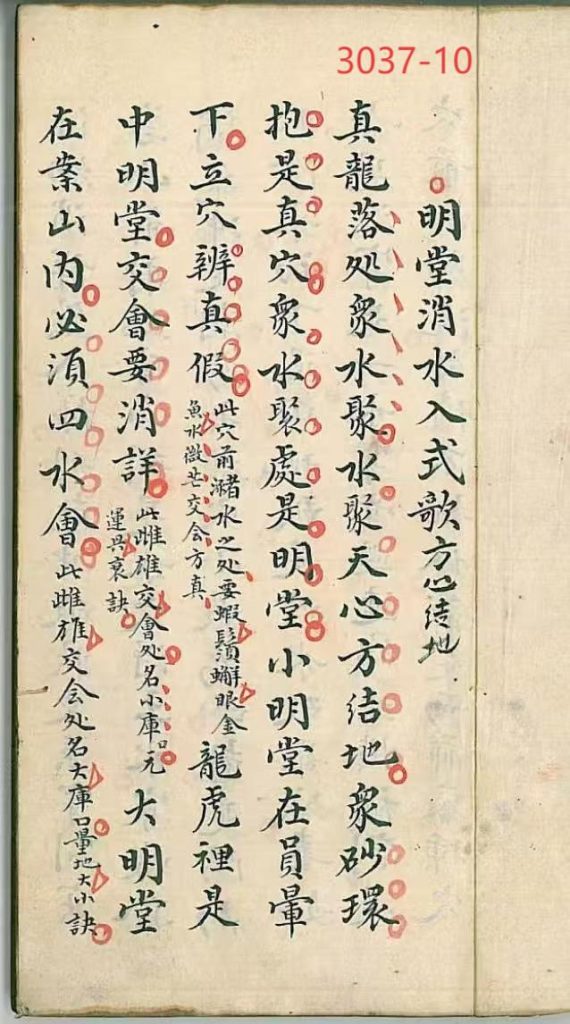 3037-10
明堂消水入式歌方心结地
真龍落处衆水聚水聚天心方结地衆砂環
抱是真穴衆水聚處是明堂小明堂在員暈
下立穴辨真假
此穴前潴水之处要蝦鬚蠏眼金
魚水微茫交会方真
龍虎裡是
中明堂交會要消詳
此雌雄交會处名小庫口元
運兴衰訣
大明堂
在案山内必須四水會此雌雄交会处名大庫口量地大小訣